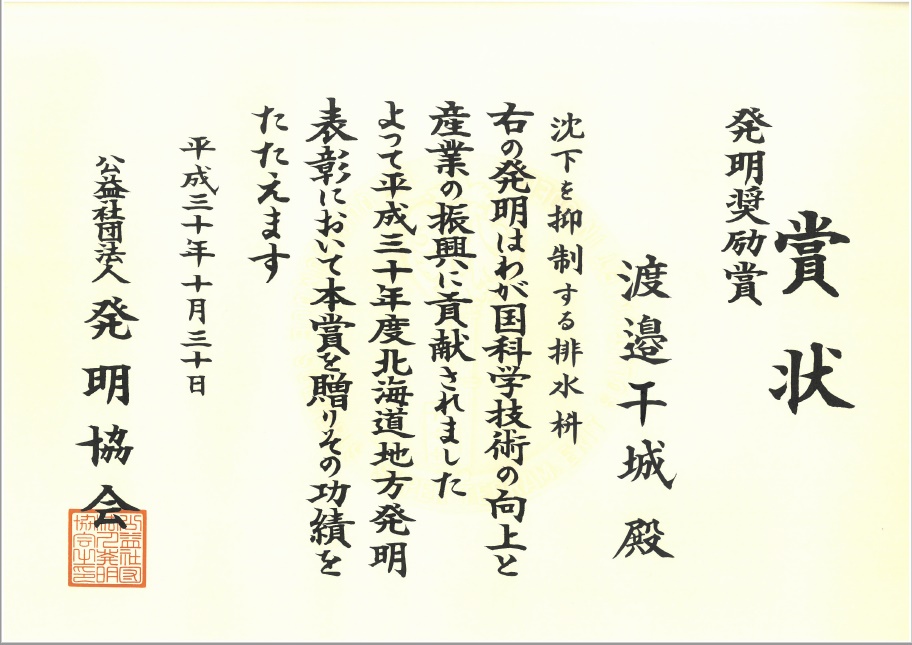 賞状
発明奨励賞
渡邉干城殿
沈下を抑制する排水枡
右の発明はわが国科学技術の向上と
産業の振興に貢献されました
よって平成三十年度北海道地方発明
表彰において本賞を贈りその功績を
たたえます
平成三十年十月三十日
公益社団法人 発明協会
公益社団
法人発明
協会之印